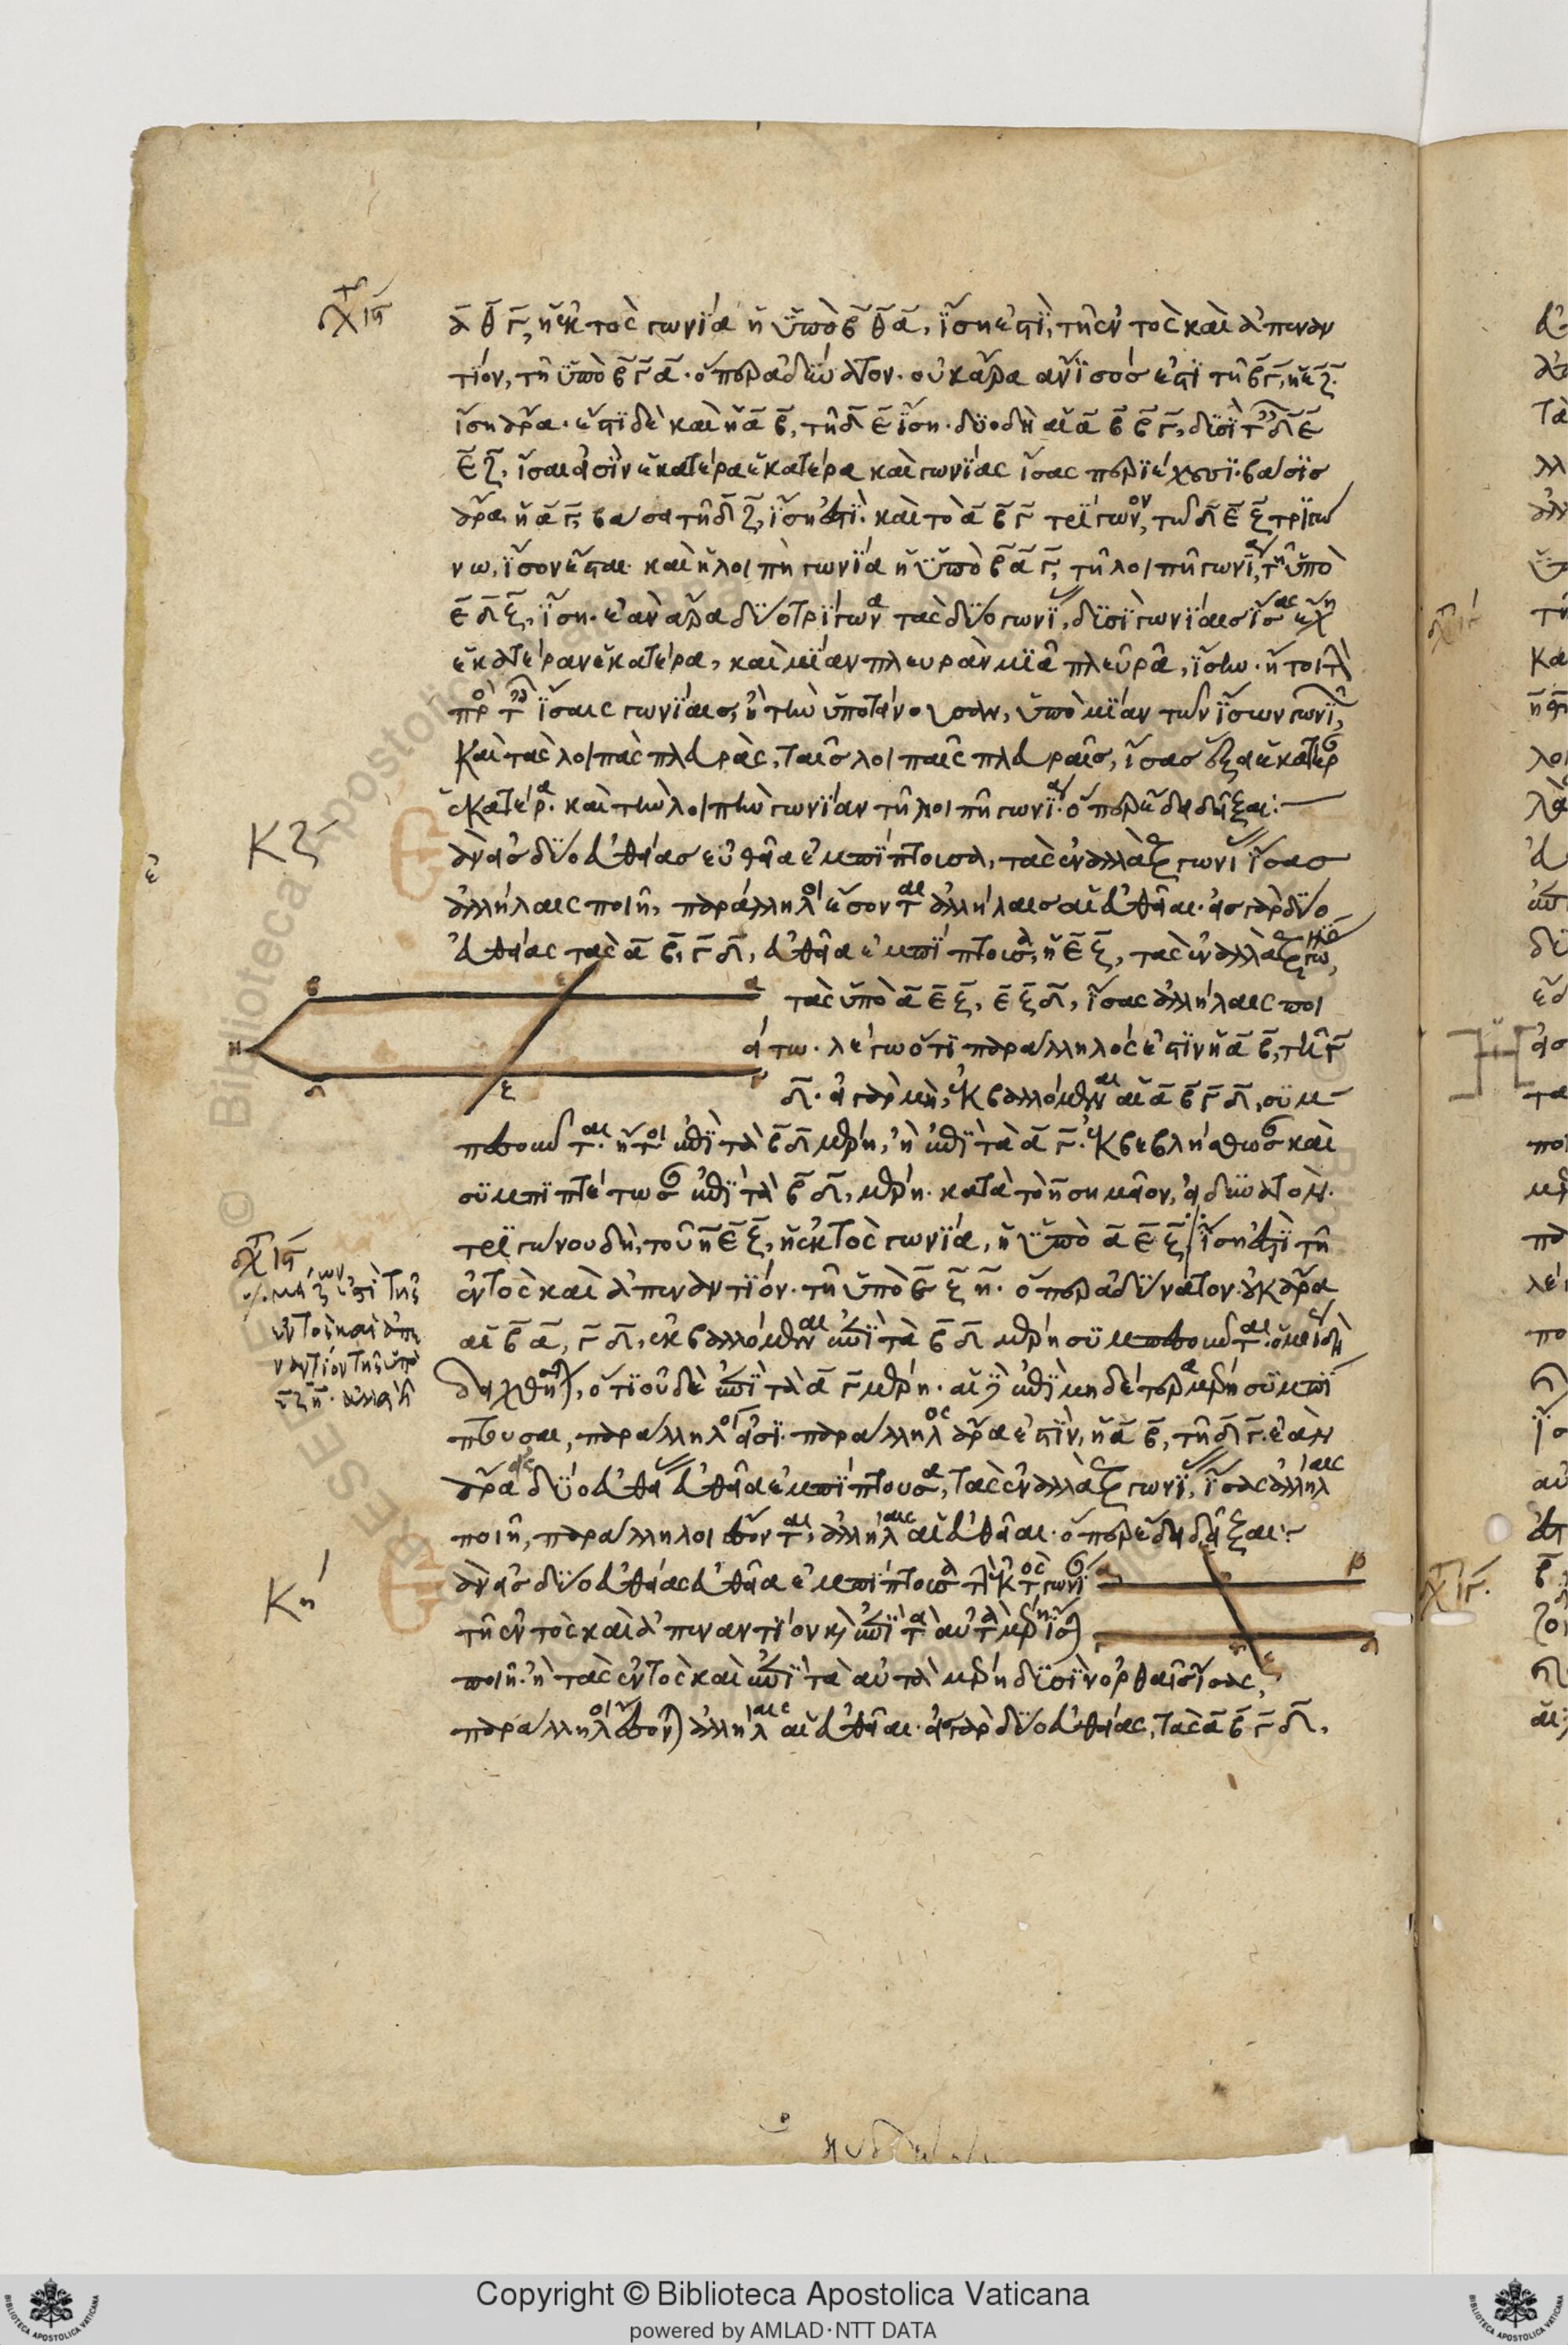 ΑΘΓ, ἡ ἐκτὸς γωνία ἡ ὑπὸ ΒΘΑ, ἴση ἐστὶ, τῇ ἐντὸς καὶ ἀπεναν
τίον, τῇ ὑπὸ ΒΓΑ· ὅπερ ἀδύνατον· οὐκ ἄρα ἄνισός ἐστι τῇ ΒΓ, ἡ ΕΖ·
ἴση ἄρα· ἔστι δὲ καὶ ἡ ΑΒ, τῇ ΔΕ ἴση· δύο δὴ αἱ ΑΒ ΒΓ, δυσὶ τ ΔΕ
ΕΖ, ἴσαι εἰσὶν ἑκατέρα ἑκατέρα καὶ γωνίας ἴσας περιέχουσι· βάσις
ἄρα ἡ ΑΓ, βάσει τῇ ΔΖ, ἴση ἐστί· καὶ τὸ ΑΒΓ τρίγων, τῶ ΔΕΖ τριγώ
νω, ἴσον ἔσται· καὶ ἡ λοιπὴ γωνία ἡ ὑπὸ ΒΑΓ, τῇ λοιπῇ γωνί, τῇ ὑπὸ
ΕΔΖ, ἴση· ἐὰν ἄρα δύο τρίγωνα τὰς δύο γωνί, δυσὶ γωνίαις ἴσας ἔχη
ἑκατέραν ἑκατέρα, καὶ μίαν πλευρὰν μιᾶ πλευρᾶ, ἴσην· ἤτοι τὴν
πρὸς τ ἴσαις γωνίαις, ἢ τὴν ὑποτείνουσαν, ὑπὸ μίαν τῶν ἴσων γωνι,
καὶ τὰς λοιπὰς πλευρὰς, ταῖς λοιπαῖς πλευραῖς, ἴσας ἕξει ἑκατερ
ἑκατέρα· καὶ τὴν λοιπὴν γωνίαν τῇ λοιπῇ γωνία· ὅπερ ἔδει δεῖξαι:—
ΚΖ
ὰν εἰς δύο εὐθείας εὐθεῖα ἐμπίπτουσα, τὰς ἐναλλὰξ γωνί ἴσας
ἀλλήλαις ποιῇ, παράλληλοι ἔσονται ἀλλήλαις αἱ εὐθεῖαι· εἰς γὰρ δύο
εὐθείας τὰς ΑΒ, ΓΔ, εὐθεῖα ἐμπίπτουσα, ἡ ΕΖ, τὰς ἐναλλὰξ γω,
τὰς ὑπὸ ΑΕΖ, ΕΖΔ, ἴσας ἀλλήλαις ποι
είτω· λέγω ὅτι παράλληλός ἐστιν ἡ ΑΒ, τῇ Γ
Δ· εἰ γὰρ μὴ, ἐκβαλλόμεναι αἱ ΑΒ ΓΔ, συμ
πεσοῦνται· ἤτοι ἐπὶ τὰ ΒΔ μέρη, ἢ ἐπὶ τὰ ΑΓ· ἐκβεβλήσθωσ καὶ
συμπιπτέτωσ ἐπὶ τὰ ΒΔ, μέρη· κατὰ τὸ Η σημεῖον, εἰ δυνατόν·
τριγώνου δὴ, τοῦ ΗΕΖ, ἡ ἐκτὸς γωνία, ἡ ὑπὸ ΑΕΖ ἴση ἐστὶ τῇ
ἐντὸς καὶ ἀπεναντίον· τῇ ὑπὸ ΕΖΗ· ὅπερ ἀδύνατον· οὐκ ἄρα
αἱ ΒΑ, ΓΔ, ἐκβαλλόμεναι ἐπὶ τὰ ΒΔ μέρη συμπεσοῦνται· ὁμοί δὴ
δειχθή, ὅτι οὐδὲ ἐπὶ τὰ ΑΓ μέρη· αἱ δὲ ἐπὶ μηδέτερα μέρη συμπί
πτουσαι, παράλληλοί εἰσι· παράλληλος ἄρα ἐστὶν, ἡ ΑΒ, τῇ ΔΓ· ἐὰν
ἄρα εἰς δύο εὐθεί εὐθεῖα ἐμπίπτουσα, τὰς ἐναλλὰξ γωνί, ἴσας ἀλλήλαις
ποιῇ, παράλληλοι ἔσονται, ἀλλήλαις αἱ εὐθεῖαι· ὅπερ ἔδει δεῖξαι:—
ΚΗ
ὰν εἰς δύο εὐθείας εὐθεῖα ἐμπίπτουσα τὴν ἐκτὸς γωνί
τῇ ἐντὸς καὶ ἀπεναντίον κ ἐπὶ τὰ αὐτὰ μέρη ἴση
ποιῇ· ἢ τὰς ἐντὸς καὶ ἐπὶ τὰ αὐτὰ μέρη δυσὶν ὀρθαῖς ἴσας,
παράλληλοι ἔσον ἀλλήλαις αἱ εὐθεῖαι· εἰς γὰρ δύο εὐθείας, τὰς ΑΒ ΓΔ,
μείζων ἐστὶ τῆς
ἐντὸς καὶ ἀπε
ναντίον τῆς ὑπὸ
ΕΖΗ· ἀλλὰ
Copyright © Biblioteca Apostolica Vaticana
powered by AMLAD·NTT DATA